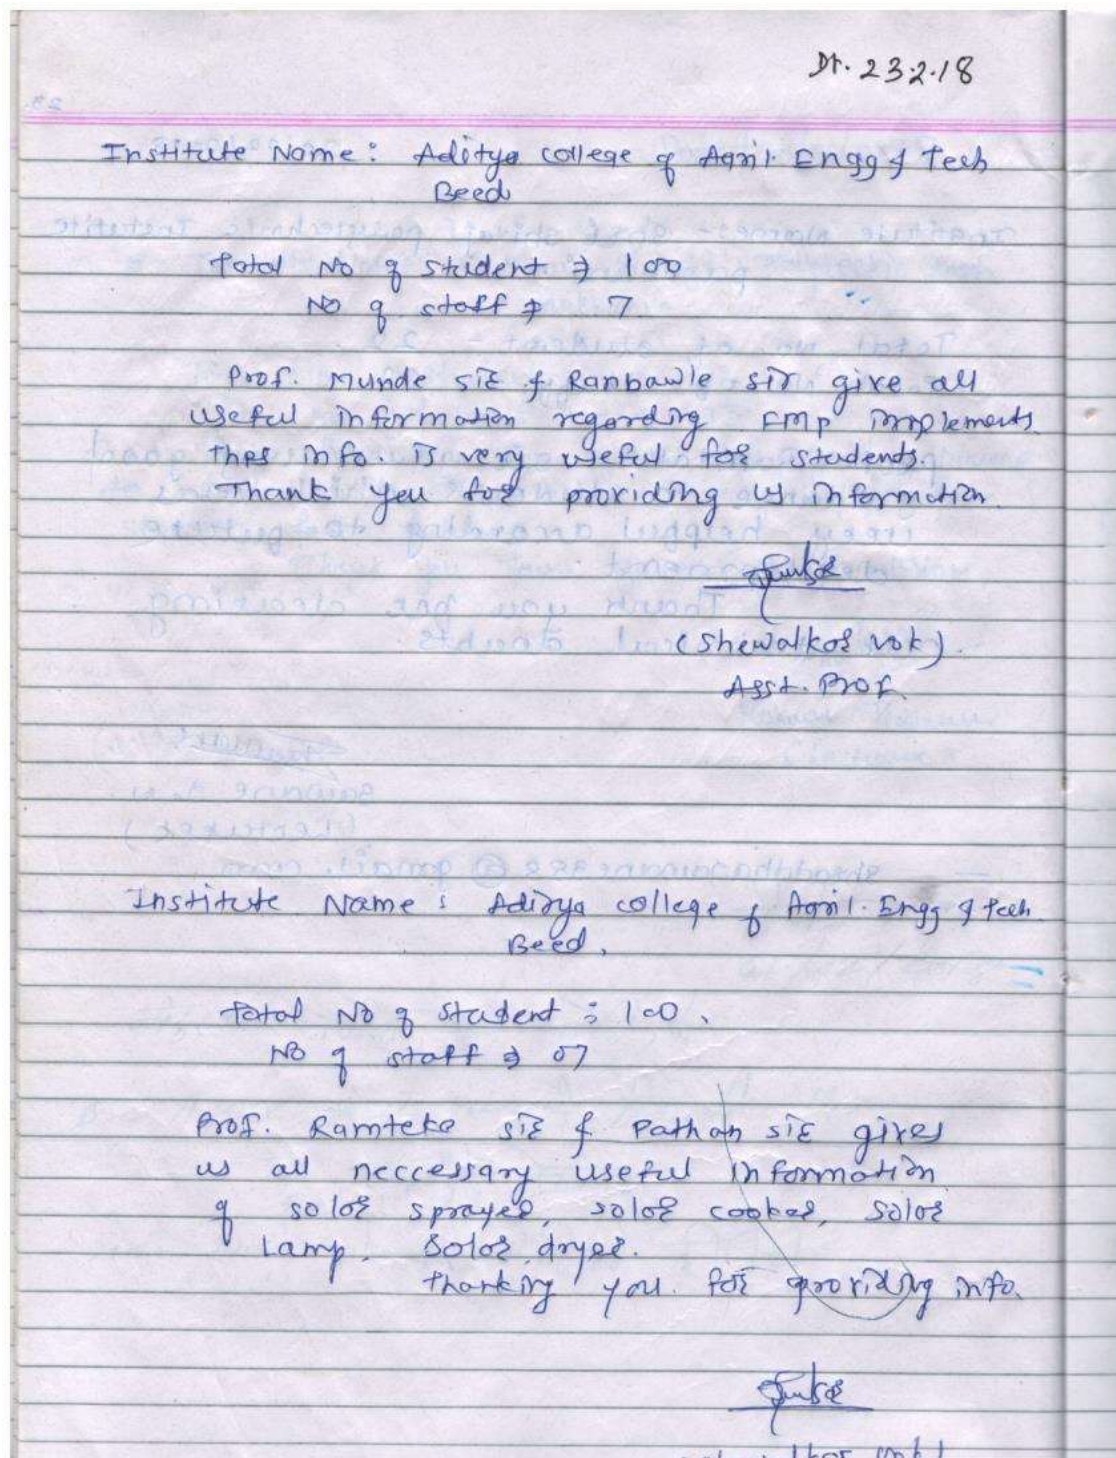 Dt. 23.2.18
Institute Name: Aditya college of Agril. Engg & Tech
Beed
Total No of student → 100
No of staff → 7
Prof. Munde sir & Ranbawle sir give all
useful information regarding FMP implements.
This info. is very useful for students.
Thank you for providing us information.
(Shewalkar VBK).
Asst. Prof.
Institute Name: Aditya college of Agril. Engg & Tech
Beed.
Total No of student : 100.
No of staff → 07
Prof. Ramteke sir & Pathan sir gives
us all neccessary useful information
of solar sprayer, solar cooker, solar
Lamp. Solar dryer.
thanking you. for providing info.